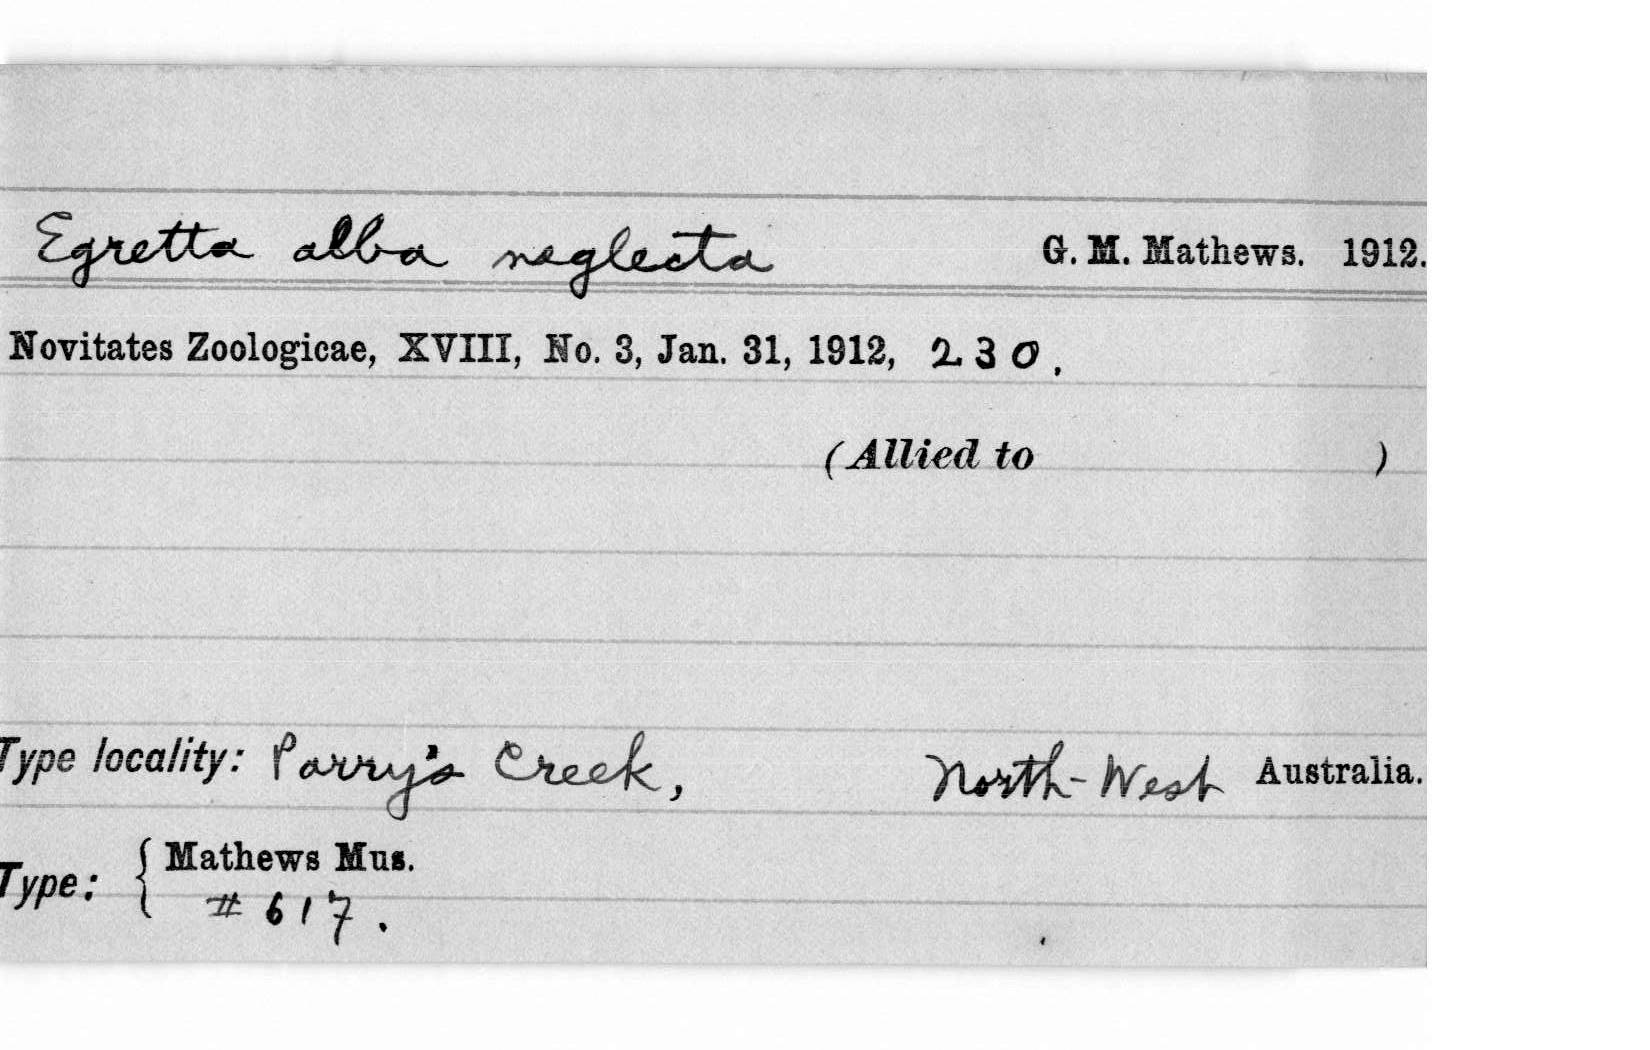 Egretta alba neglecta G. M. Mathews. 1912.
Novitates Zoologicae, XVIII, No. 3, Jan. 31, 1912, 230.
(Allied to )
Type locality: Parry's Creek, North-West Australia.
Type: { Mathews Mus.
# 617.